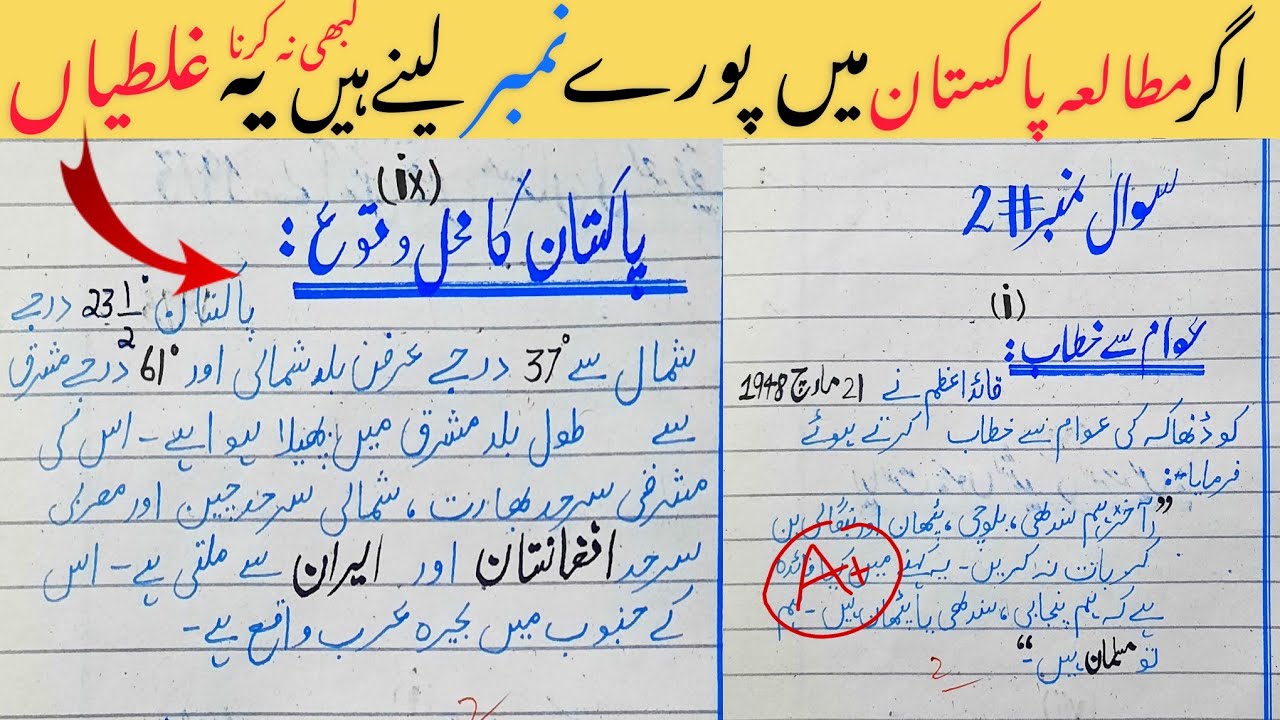 اگر مطالعہ پاکستان میں پورے نمبر لینے ہیں کبھی نہ کرنا یہ غلطیاں
سوال نمبر #2
(i)
عوام سے خطاب :
قائداعظم نے 21 مارچ 1948
کو ڈھاکہ کی عوام سے خطاب کرتے ہوئے
فرمایا :
”آخر ہم سندھی، بلوچی، پٹھان اور بنگالی بن
کر بات نہ کریں۔ یہ کہنے میں کیا فائدہ
ہے کہ ہم پنجابی، سندھی یا پٹھان ہیں۔ ہم
تو مسلمان ہیں۔“
A+
2
(ix)
پاکستان کا محل وقوع :
پاکستان 23 1/2° درجے
شمال سے 37° درجے عرض بلد شمالی اور 61° درجے مشرق
سے طول بلد مشرق میں پھیلا ہوا ہے۔ اس کی
مشرقی سرحد بھارت، شمالی سرحد چین اور مغربی
سرحد افغانستان اور ایران سے ملتی ہے۔ اس
کے جنوب میں بحیرہ عرب واقع ہے۔
2